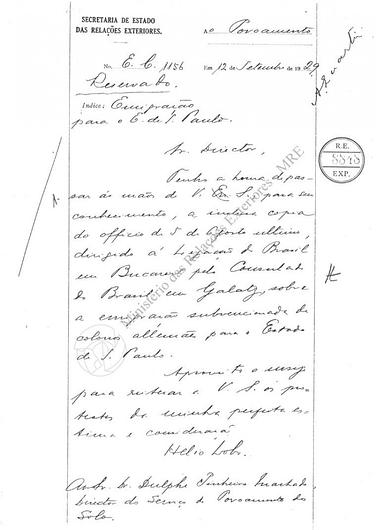 SECRETARIA DE ESTADO
DAS RELAÇÕES EXTERIORES.
Ao Povoamento
No. E. C. 1156
Em 12 de Setembro de 1929.
Reservado.
Indice: Emigração
para o E. de S. Paulo.
R.E.
8848
EXP.
Sr. Director,
Tenho a honra de pas-
sar ás mãos de V. S. para seu
conhecimento, a inclusa copia
do officio de 5 de Agosto ultimo,
dirigido á Legação do Brasil
em Bucarest pelo Consulado
do Brasil em Galatz, sobre
a emigração subvencionada de
colonos allemães para o Estado
de S. Paulo.
Aproveito o ensejo
para reiterar a V. S. os pro-
testos da minha perfeita es-
tima e consideração
Helio Lobo.
Ao Sr. Dulphe Pinheiro Machado,
Director do Serviço de Povoamento do
Solo.
Ministério das Relações Exteriores - MRE